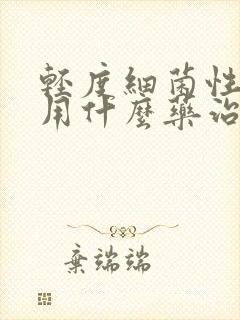 輕度細菌性
用什麼藥治
棄端端